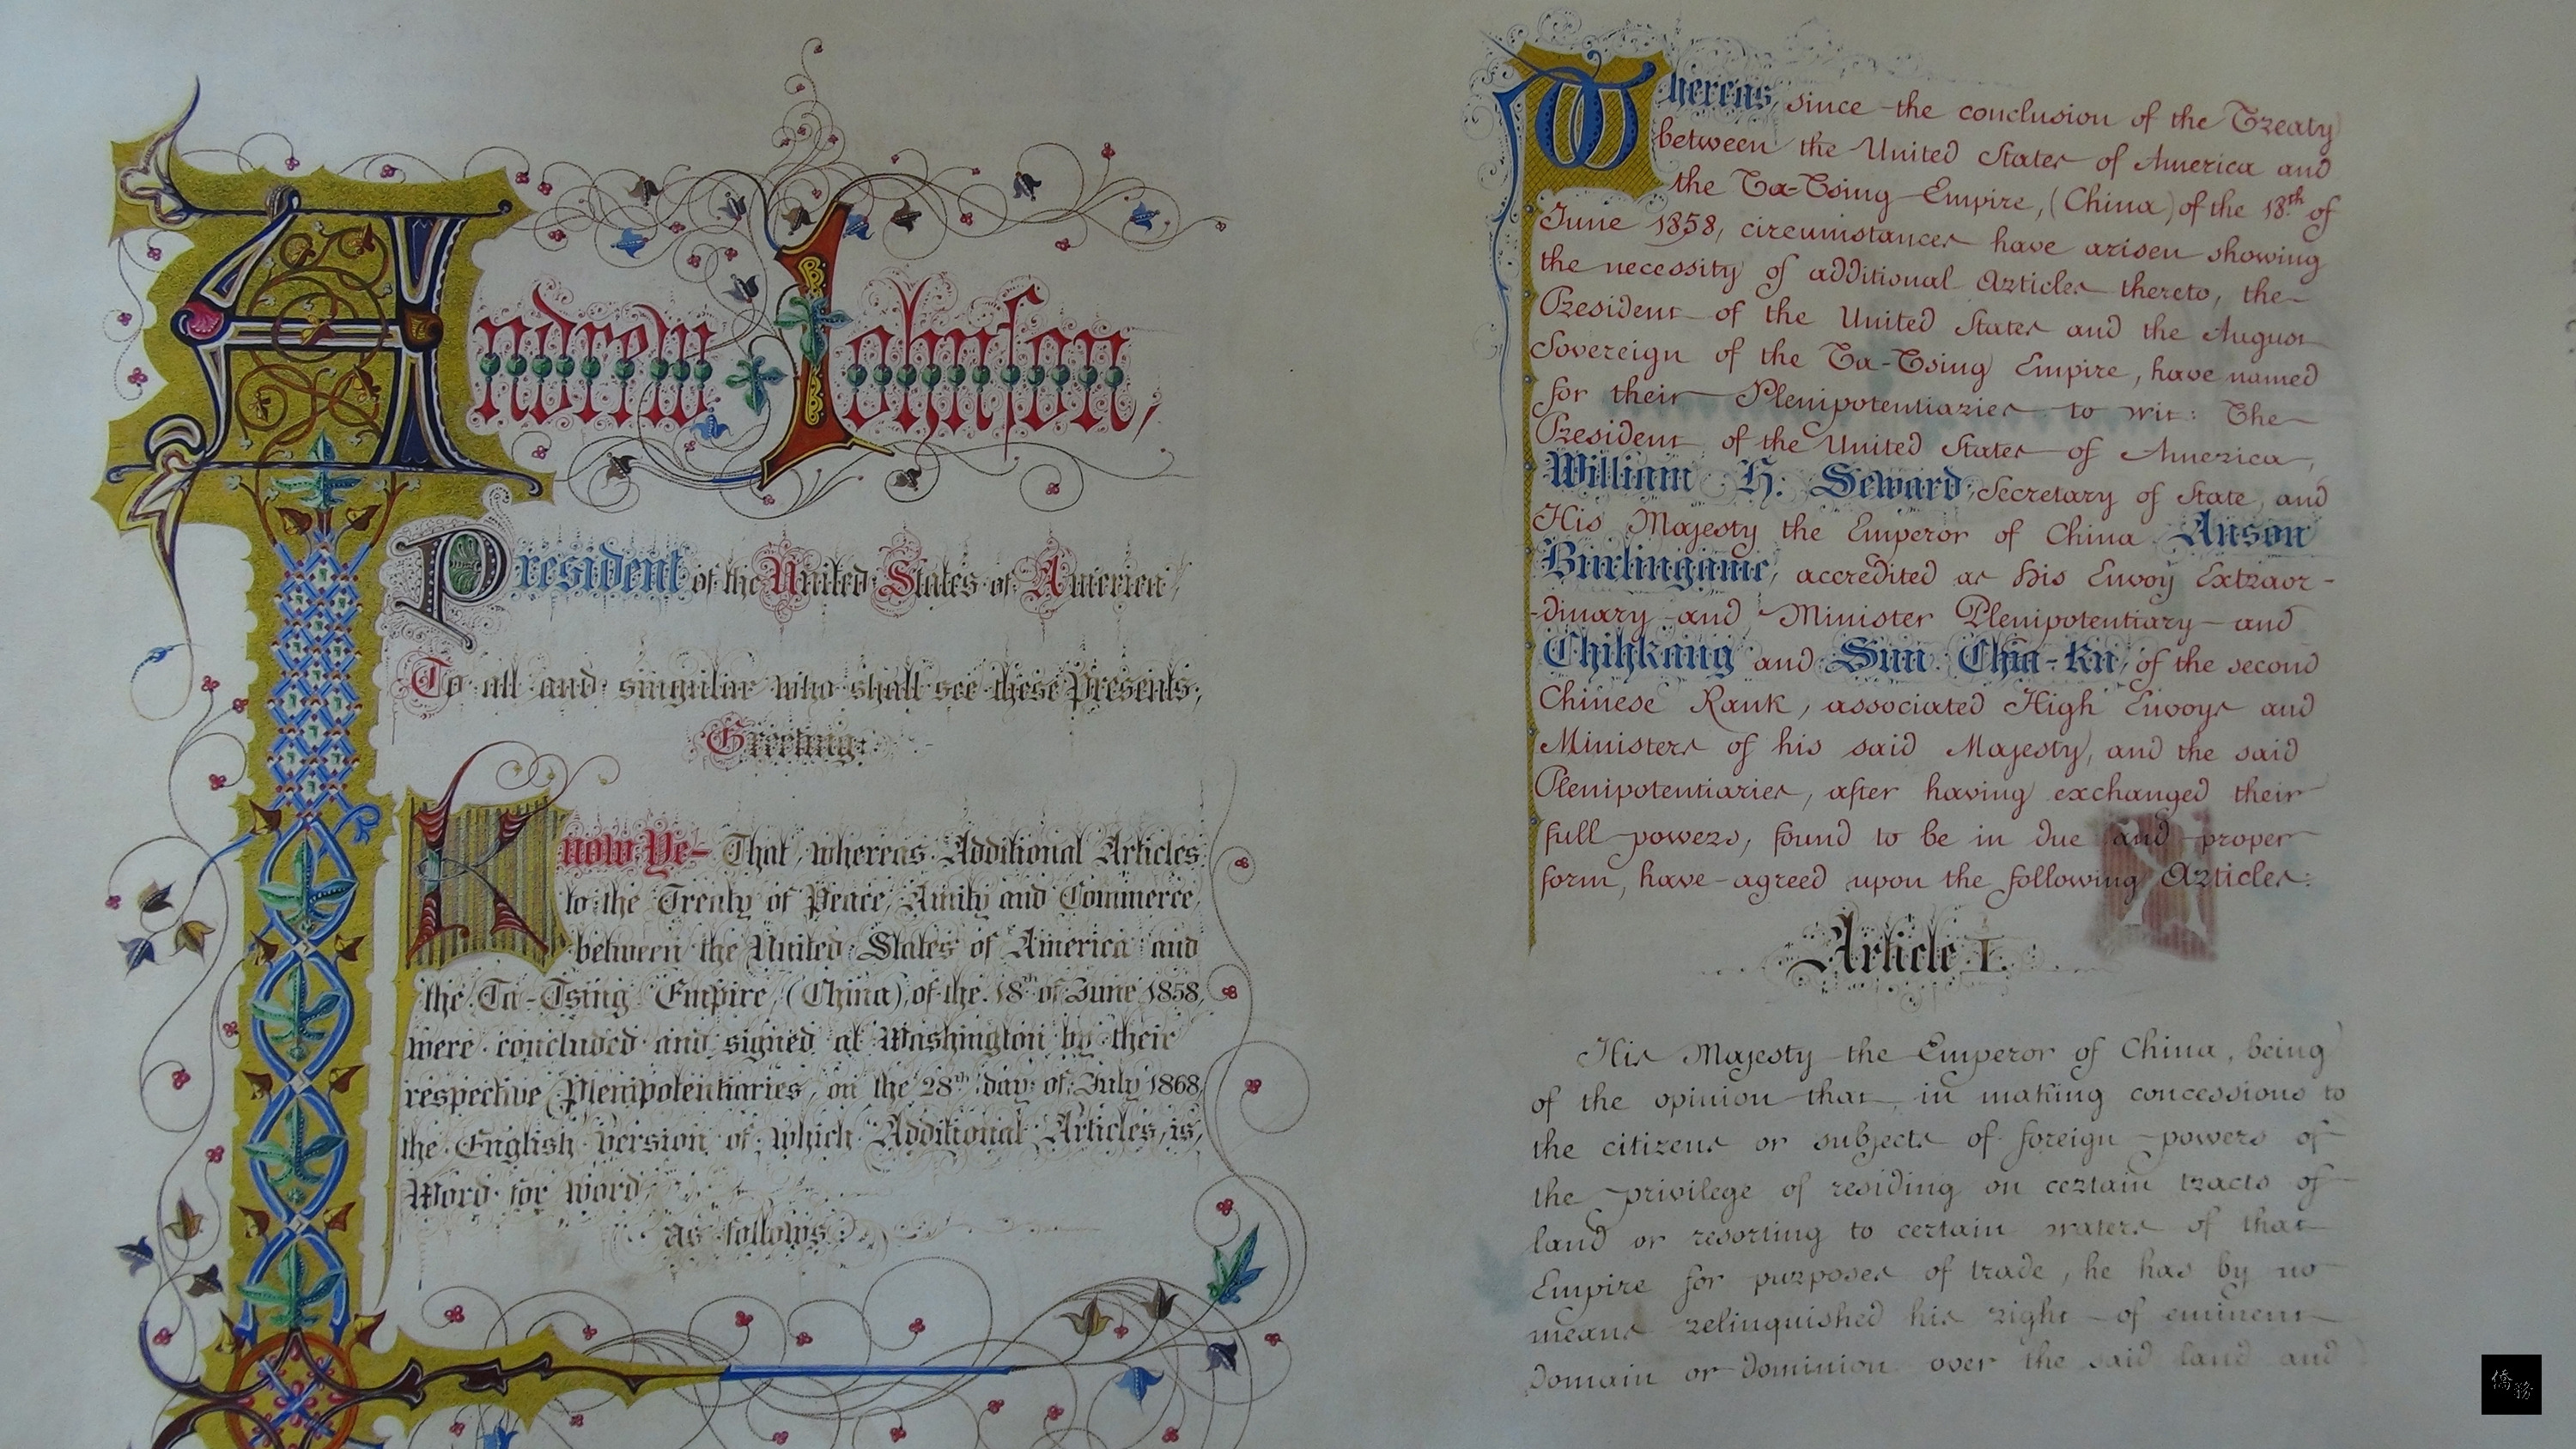 Andrew Johnson,
President of the United States of America,
To all and singular who shall see these Presents,
Greeting:
Know Ye- That, whereas Additional Articles
to the Treaty of Peace, Amity and Commerce,
between the United States of America and
the Ta-Tsing Empire, (China), of the 18th of June 1858,
were concluded and signed at Washington by their
respective Plenipotentiaries, on the 28th day of July 1868,
the English version of which Additional Articles, is,
Word for word,
as follows:
Whereas, since the conclusion of the Treaty
between the United States of America and
the Ta-Tsing Empire, (China) of the 18th of
June 1858, circumstances have arisen showing
the necessity of additional Articles thereto, the
President of the United States and the August
Sovereign of the Ta-Tsing Empire, have named
for their Plenipotentiaries to wit: The
President of the United States of America,
William H. Seward, Secretary of State, and
His Majesty the Emperor of China Anson
Burlingame, accredited as his Envoy Extraor-
-dinary and Minister Plenipotentiary and
Chihkang and Sun Chia-Ku, of the second
Chinese Rank, associated High Envoys and
Ministers of his said Majesty, and the said
Plenipotentiaries, after having exchanged their
full powers, found to be in due and proper
form, have agreed upon the following Articles:
Article I.
His Majesty the Emperor of China, being
of the opinion that, in making concessions to
the citizens or subjects of foreign powers of
the privilege of residing on certain tracts of
land or resorting to certain waters of that
Empire for purposes of trade, he has by no
means relinquished his right of eminent
domain or dominion over the said land and
僑務